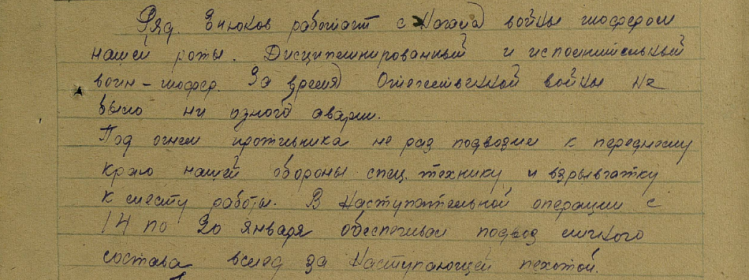 Ряд. Знюков работает с начала войны шофером
нашей роты. Дисциплинированный и исполнительный
воин-шофер. За время Отечественной войны не
было ни одной аварии.
Под огнем противника не раз подвозил к переднему
краю нашей обороны спец. технику и взрывчатку
к месту работы. В наступательной операции с
14 по 20 января обеспечивал подвоз личного
состава вслед за наступающей пехотой.